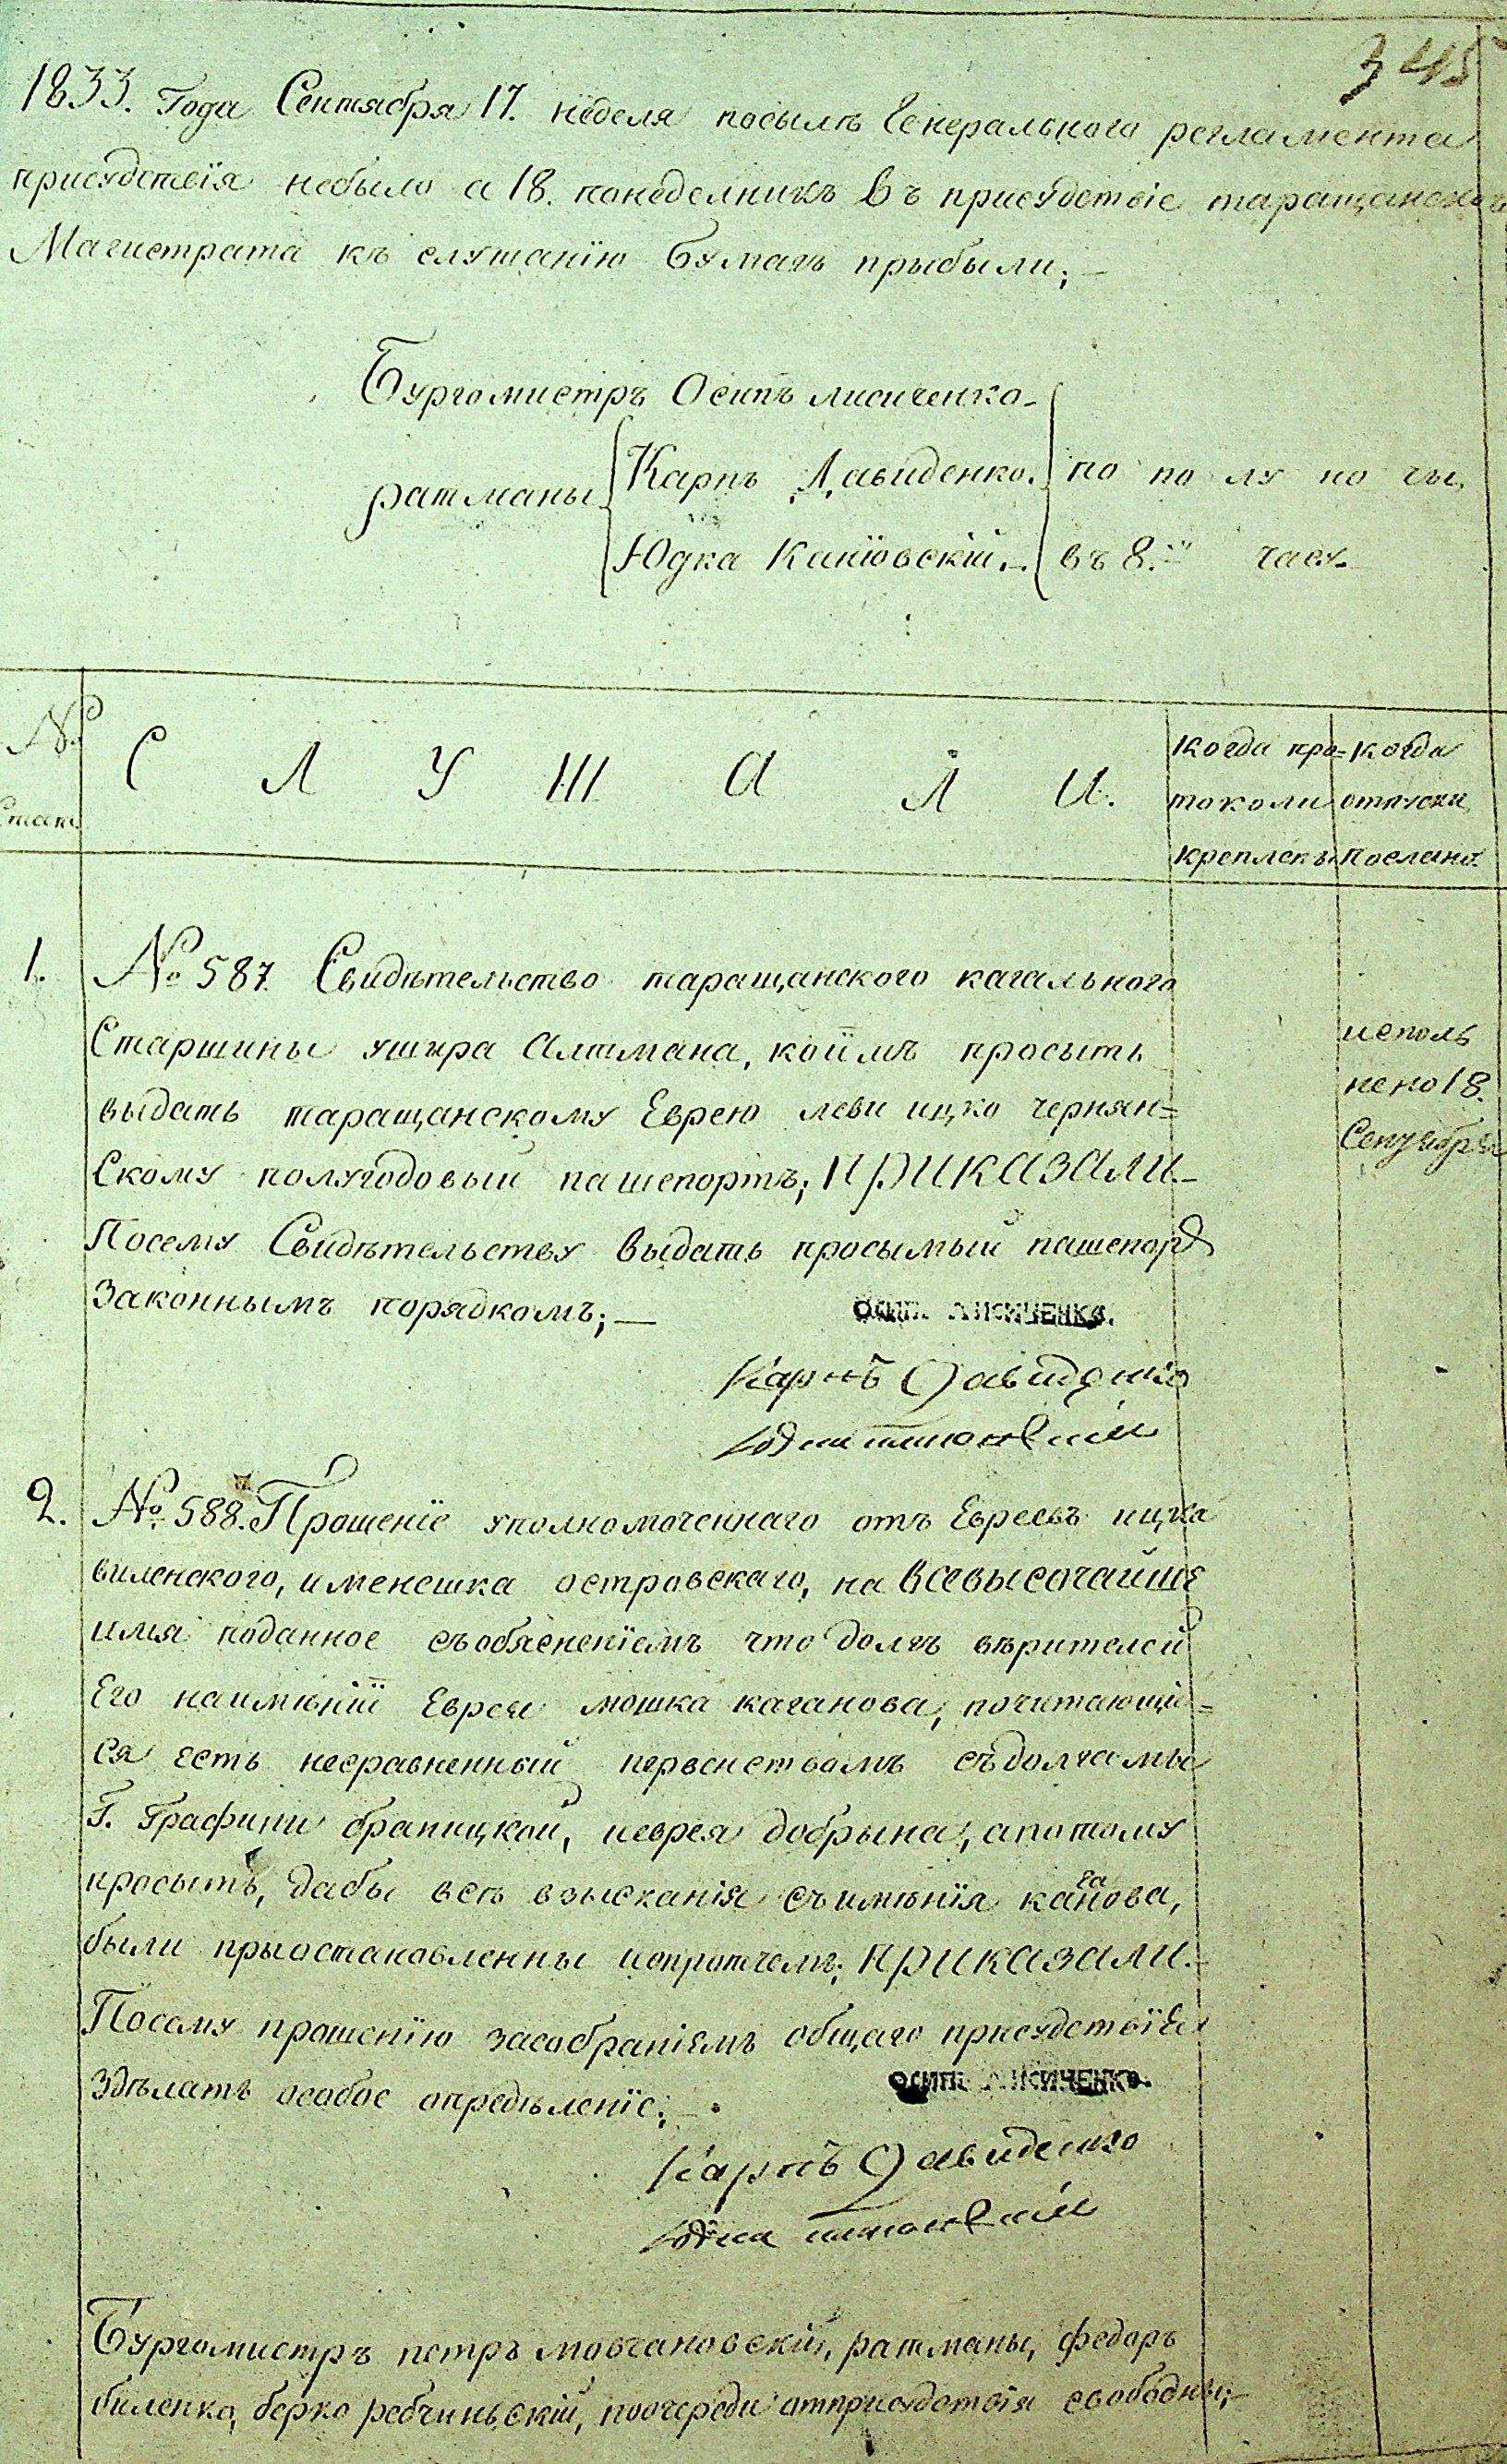 345
1833. Года Сентября 17. неделя посылъ Генерального регламента
присудствїя небыло а 18. понеделникъ Въ присудствіе таращанского
Магистрата къ слушанїю бумагъ прыбыли;
Бургомистръ Осипъ лисиченко
ратманы Карпъ Давиденко. по по лу но чы,
Юдка Канїовскій. въ 8. часу.
№ С Л У Ш А Л И. когда про= когда
Стат. токолы отпуски
креплены посланы.
1. № 587. Свидѣтельство таращанского кагального
Старшины ушыра Алтмана, коїмъ просыть исполь
выдать таращанскому Еврею леви ицко чернян= нено 18.
Скому полугодовый пашепортъ; ПРИКАЗАЛИ. Сентября
Посему Свидѣтельству выдать просымый пашепорт
Законнымъ порядкомъ;
ОСИПЪ ЛИСИЧЕНКО.
Карпъ Давиденко
2. № 588. Прошенїе уполномоченнаго отъ Евреевъ ицка
виленского, именешка островскаго, на Всевысочайше
имя поданное съобясненїемъ что долгъ вѣрителей
Его наимѣнїї Еврея мошка каганова, почитающій=
ся есть несравненный первенствомъ съдолгамы
Г. Графини браницкой, иеврея добрына, апотому
просытъ, дабы всѣ взысканія съимѣнїя каганова,
были прыостановленны ипротчемъ; ПРИКАЗАЛИ.
Посему прошенїю засобранїемъ общаго присудствїя
Здѣлать особое опредѣленїе;
ОСИПЪ ЛИСИЧЕНКО.
Карпъ Давиденко
Бургомистръ петръ мовчановскій, ратманы, федоръ
биленко, берко ребчиньскій, поочереди отприсудствія свободны;